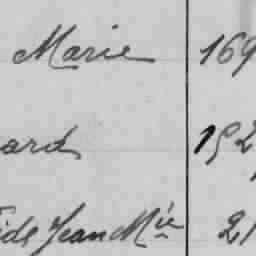 Marie 169
ard 152
ide Jean Mie 21